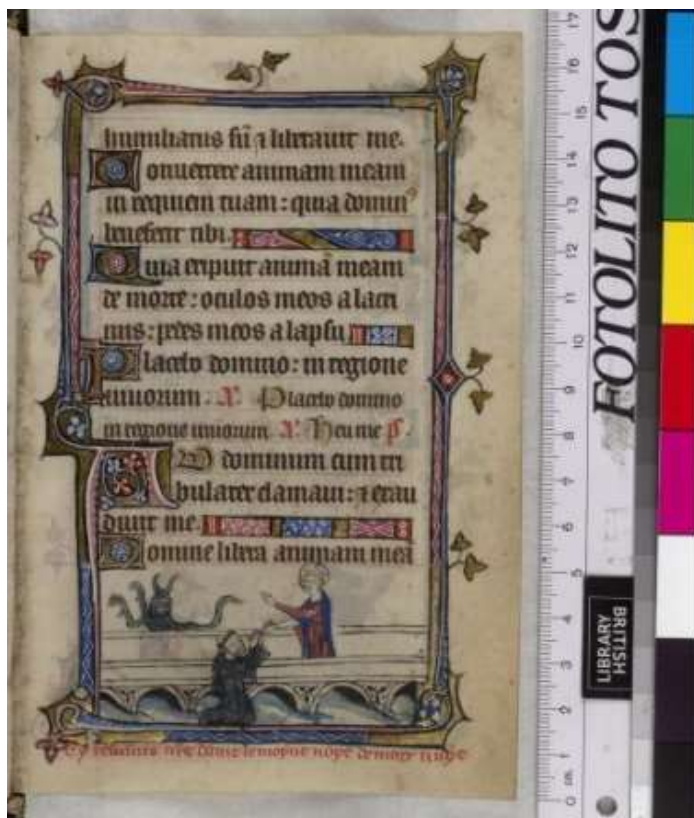 humiliatus sū ⁊ liberauit me.
Conuertere animam meam
in requiem tuam : quia domin⁹
benefecit tibi.
Quia eripuit animā meam
de morte : oculos meos a lacri
mis : pedes meos a lapsu.
Placebo domino : in regione
uiuorum. Placebo domino
in regione uiuorum. Heu me p̄.
AD dominum cum tri
bularer clamaui : ⁊ exau
diuit me.
Domine libera animam meā
Cy nre dame le moyne
FOTOLITO TOS
BRITISH
LIBRARY
17
16
15
14
13
12
11
10
9
8
7
6
5
4
3
2
1
0 cm